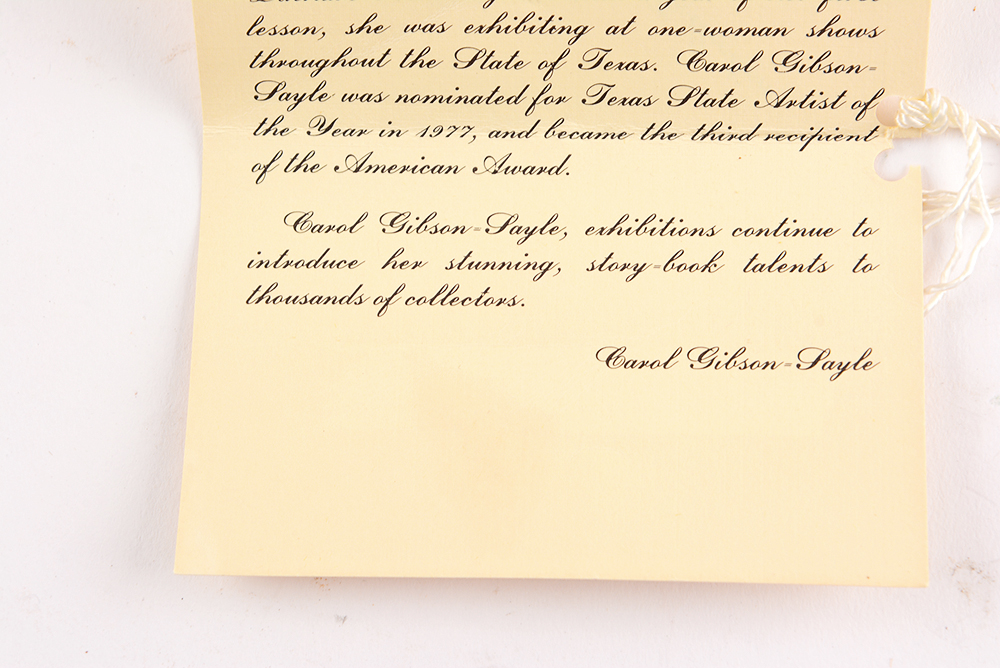 lesson, she was exhibiting at one-woman shows
throughout the State of Texas. Carol Gibson-
Sayle was nominated for Texas State Artist of
the Year in 1977, and became the third recipient
of the American Award.
Carol Gibson-Sayle, exhibitions continue to
introduce her stunning, story-book talents to
thousands of collectors.
Carol Gibson-Sayle